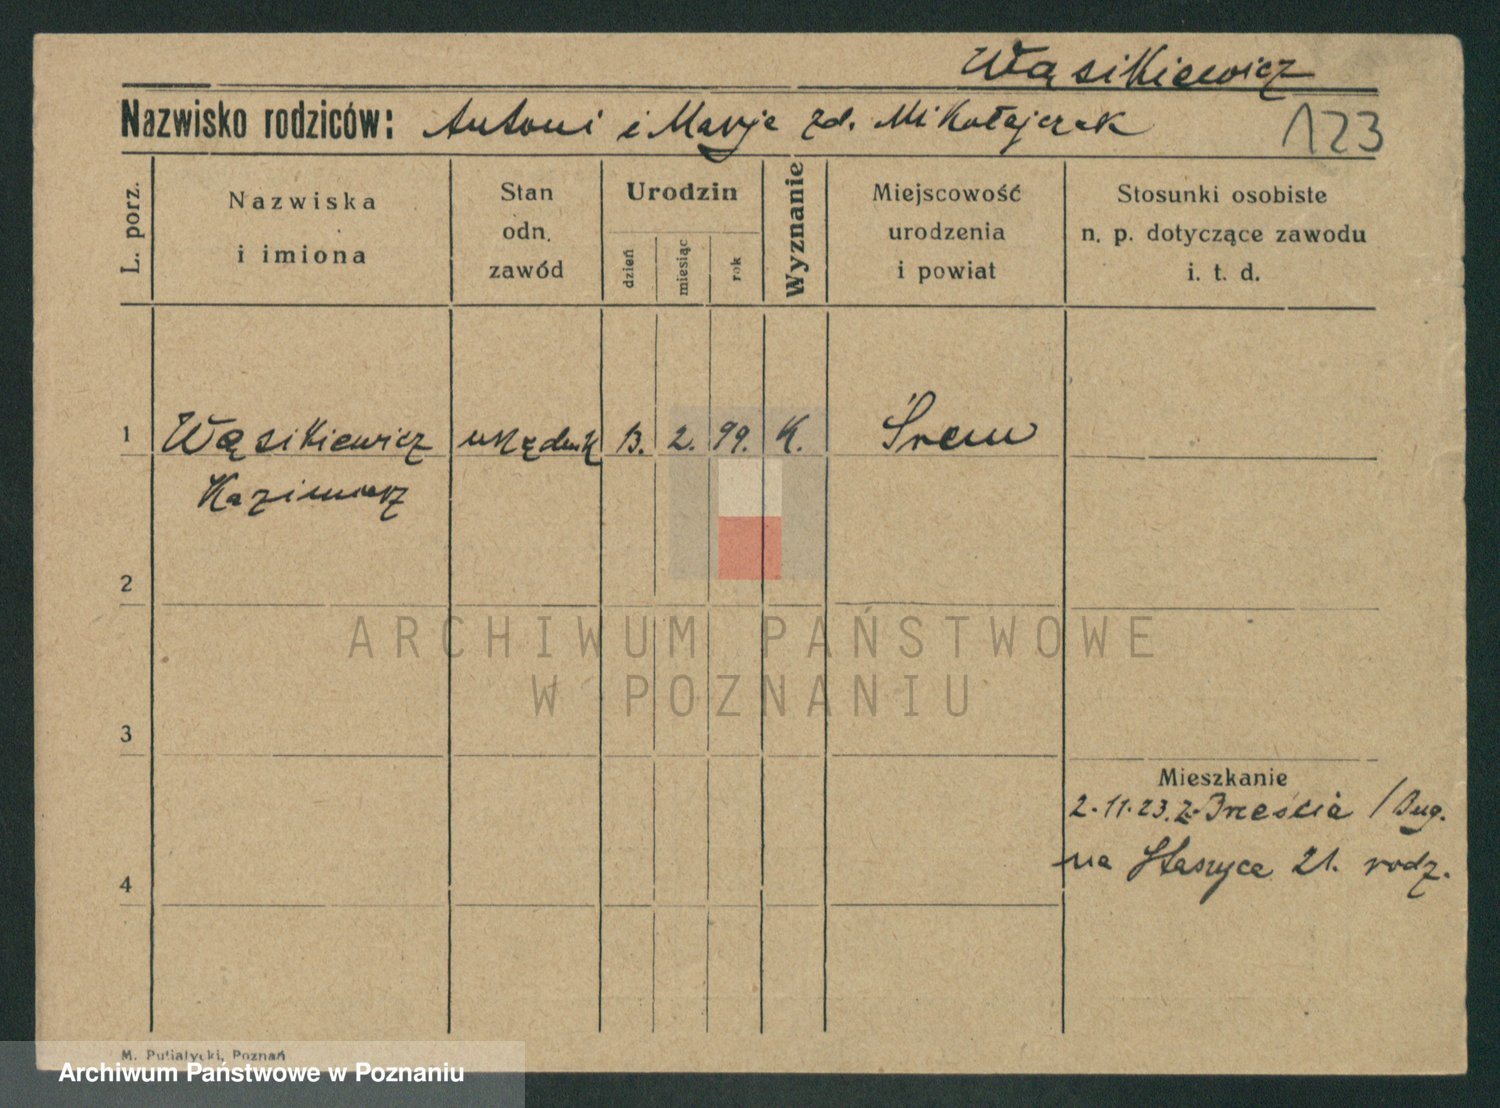 Wąsikiewicz
Nazwisko rodziców: Antoni i Marja zd. Mikołajczak
123
L. porz.
Nazwiska
i imiona
Stan
odn.
zawód
Urodzin
dzień
miesiąc
rok
Wyznanie
Miejscowość
urodzenia
i powiat
Stosunki osobiste
n. p. dotyczące zawodu
i. t. d.
1 Wąsikiewicz urzędnik 13. 2. 99. K. Śrem
Kazimierz
2
ARCHIWUM PAŃSTWOWE
W POZNANIU
3
Mieszkanie
2.11.23. z Brześcia /Bug.
na Staszyca 21. rodz.
4
M. Putiatycki, Poznań
Archiwum Państwowe w Poznaniu